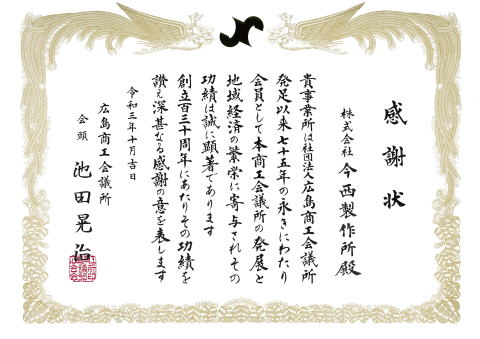 感謝状
株式会社 今西製作所殿
貴事業所は社団法人広島商工会議所
発足以来七十五年の永きにわたり
会員として本商工会議所の発展と
地域経済の繁栄に寄与されその
功績は誠に顕著であります
創立百三十周年にあたりその功績を
讃え深甚なる感謝の意を表します
令和三年十月吉日
広島商工会議所
会頭 池田晃治